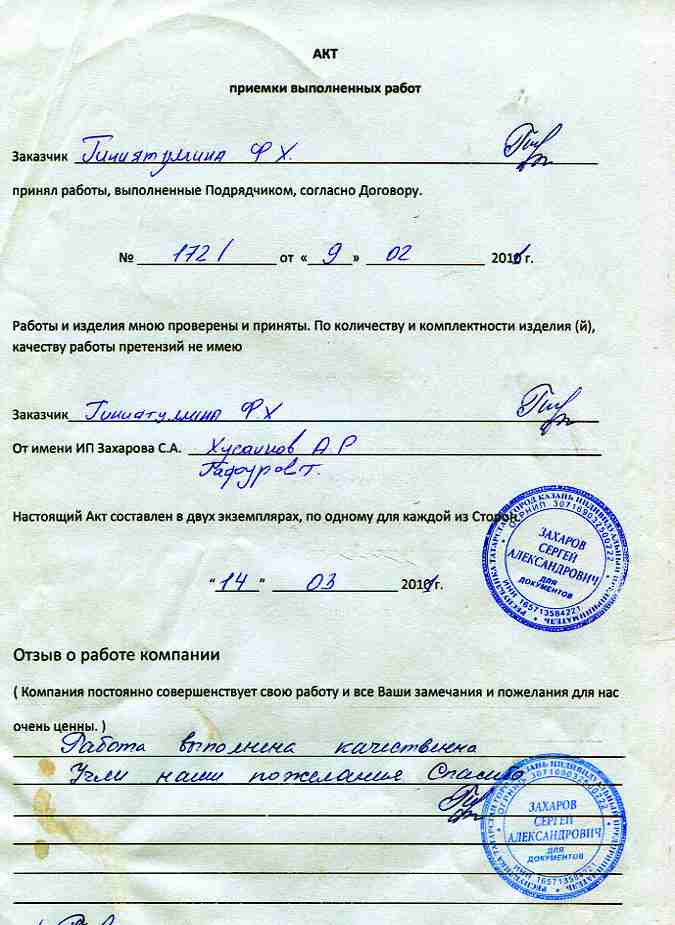 АКТ
приемки выполненных работ
Заказчик Гиниятуллина Ф Х.
принял работы, выполненные Подрядчиком, согласно Договору.
№ 172/ от «9» 02 2011 г.
Работы и изделия мною проверены и приняты. По количеству и комплектности изделия (й),
качеству работы претензий не имею
Заказчик Гиниатуллина Ф.Х
От имени ИП Захарова С.А. Хусаинов А Р
Настоящий Акт составлен в двух экземплярах, по одному для каждой из Сторон.
РЕСПУБЛИКА ТАТАРСТАН ГОРОД КАЗАНЬ ИНДИВИДУАЛЬНЫЙ ПРЕДПРИНИМАТЕЛЬ
ОГРНИП 307169032500222
ЗАХАРОВ
СЕРГЕЙ
АЛЕКСАНДРОВИЧ
ДЛЯ
ДОКУМЕНТОВ
ИНН 165713584221
"14" 03 2011 г.
Отзыв о работе компании
( Компания постоянно совершенствует свою работу и все Ваши замечания и пожелания для нас
очень ценны. )
Работа выполнена качественна
Учли наши пожелания Спасибо
РЕСПУБЛИКА ТАТАРСТАН ГОРОД КАЗАНЬ ИНДИВИДУАЛЬНЫЙ ПРЕДПРИНИМАТЕЛЬ
ОГРНИП 307169032500222
ЗАХАРОВ
СЕРГЕЙ
АЛЕКСАНДРОВИЧ
ДЛЯ
ДОКУМЕНТОВ
ИНН 165713584221